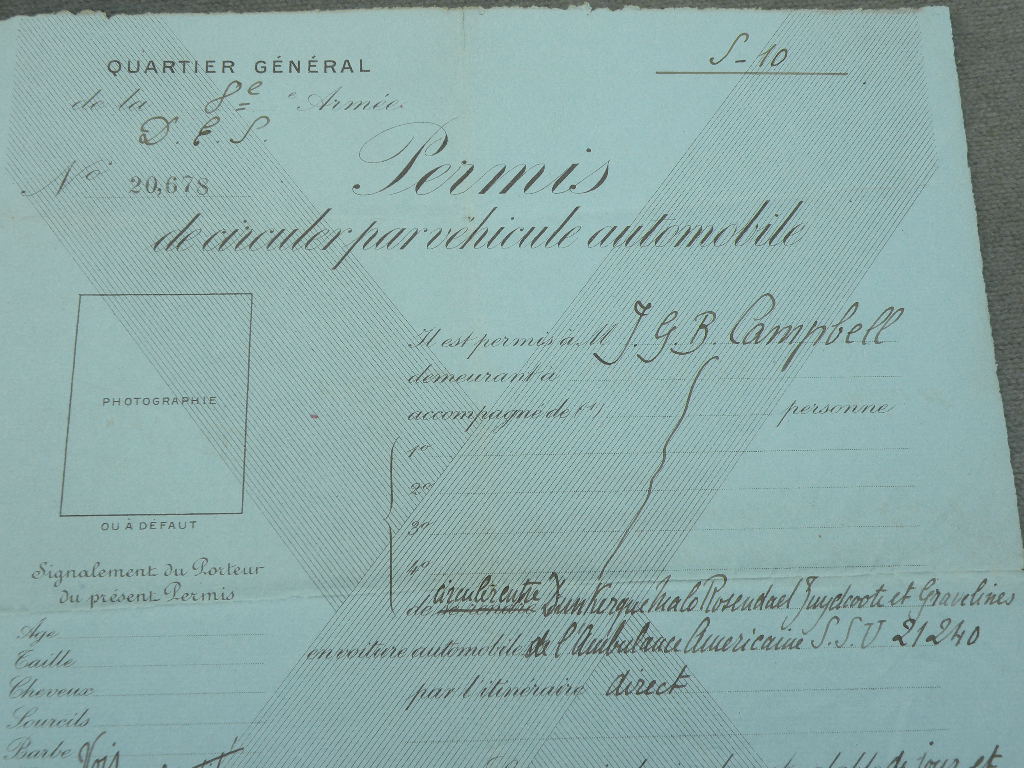 QUARTIER GÉNÉRAL
S-10
de la 8e e Armée
D. E. S.
No 20,678
Permis
de circuler par véhicule automobile
PHOTOGRAPHIE
OU À DÉFAUT
Signalement du Porteur
du présent Permis
Age
Taille
Cheveux
Sourcils
Barbe
Il est permis à M J. G. B. Campbell
demeurant à
accompagné de (1) personne
1o
2o
3o
4o
de circuler entre Dunkerque Malo Rosendael Zuydcoote et Gravelines
en voiture automobile de l'Ambulance Americaine S.S.U 21240
par l'itinéraire direct
de jour et